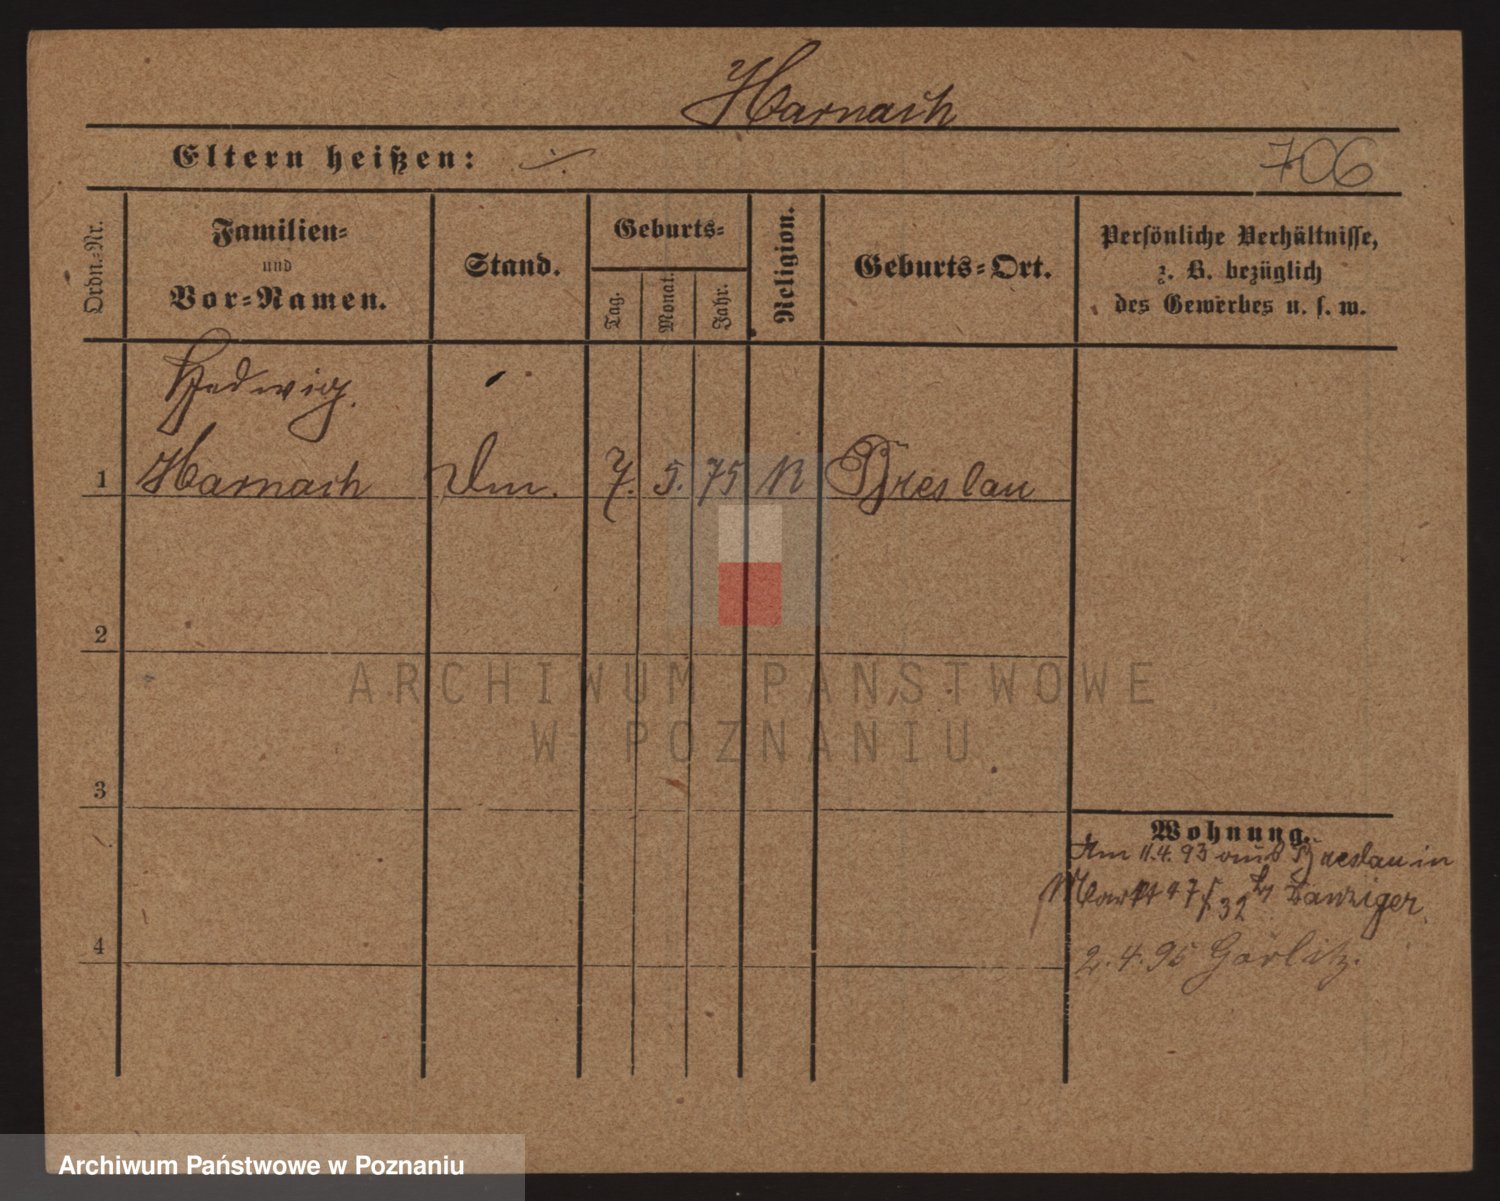 Harnach
Eltern heißen:
706
Ordn.-Nr.
Familien-
und
Vor-Namen.
Stand.
Geburts-
Tag.
Monat.
Jahr.
Religion.
Geburts-Ort.
Persönliche Verhältnisse,
z. B. bezüglich
des Gewerbes u. s. w.
Hedwig.
1 Harnach 7. 5. 75 Breslau
2
3
4
ARCHIWUM PAŃSTWOWE
W POZNANIU
Wohnung.
Am 11.4.93 aus Breslau in
Markt 47 32 Danziger
2.4.95 Görlitz.
Archiwum Państwowe w Poznaniu